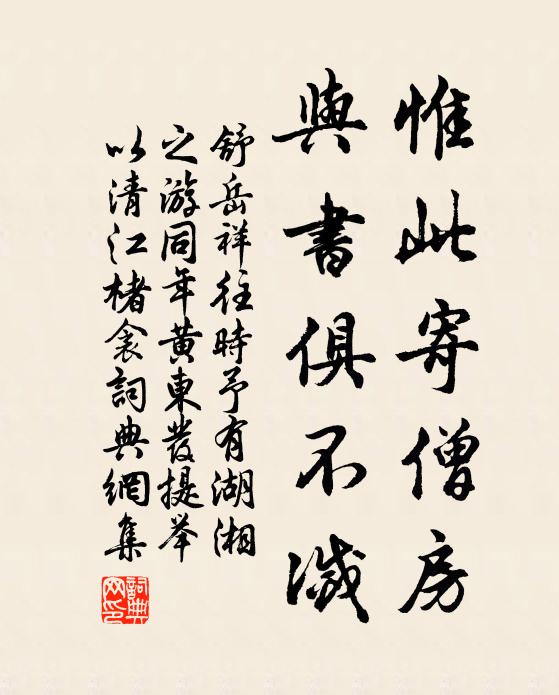 惟此寄僧房
與書俱不滅
舒岳祥往時予有湖湘
之游同年黄東發提举
以清江楮衾詞典網集
詞典網印